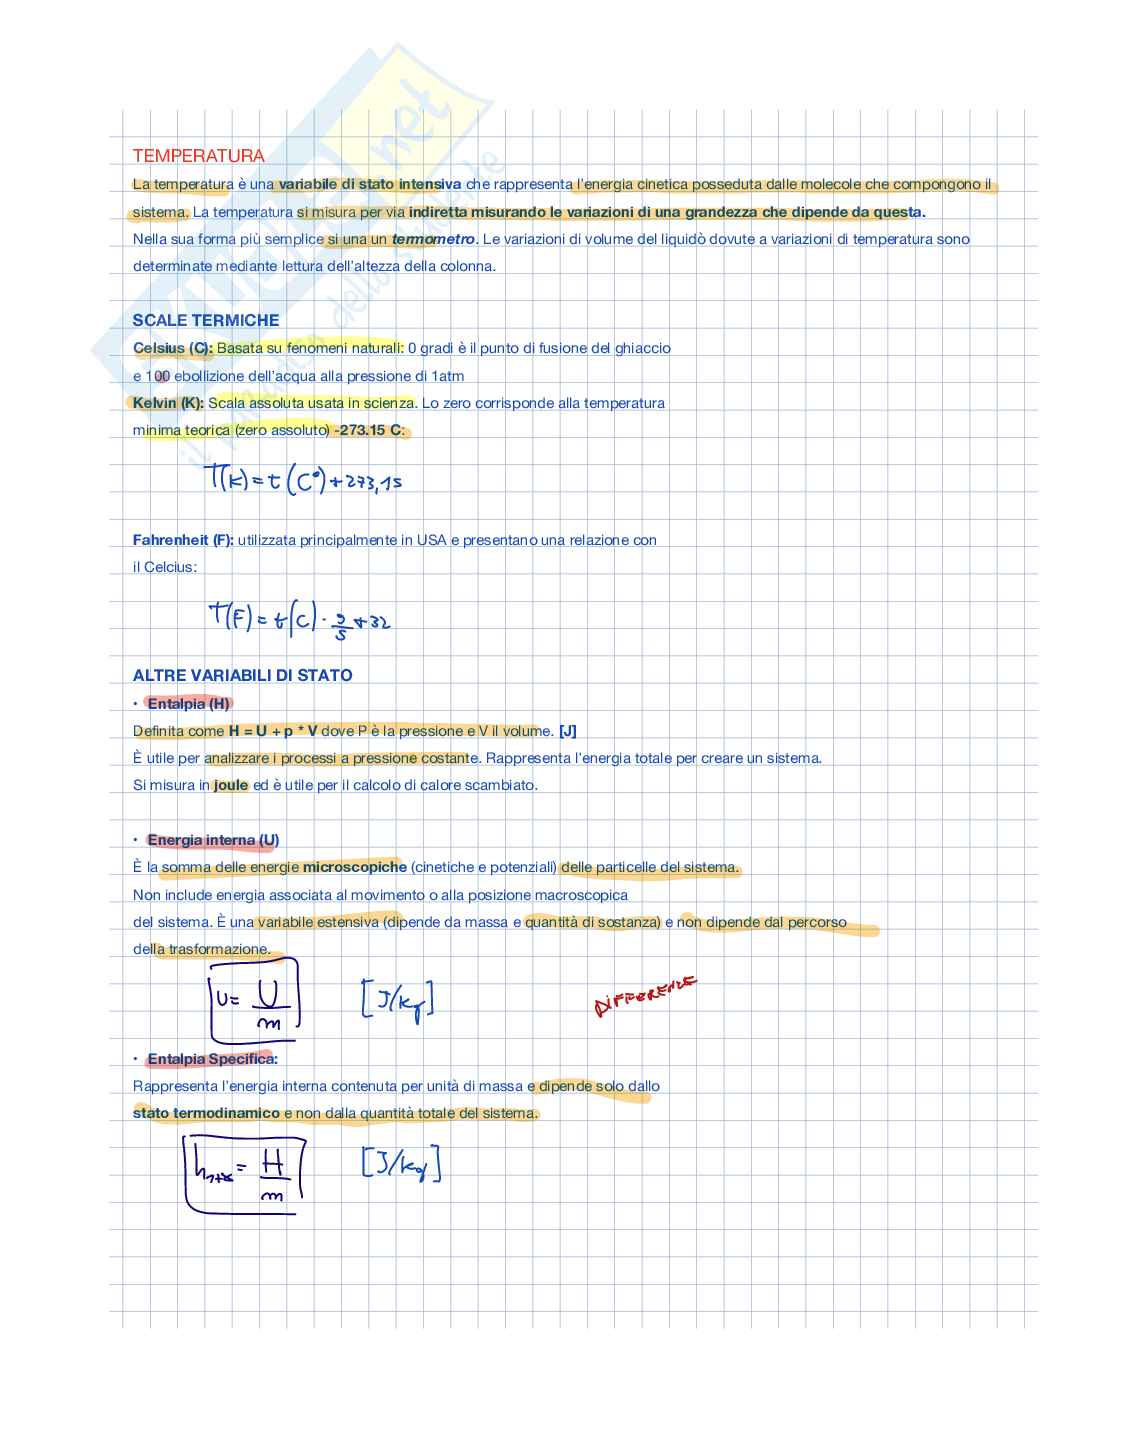 TEMPERATURA
La temperatura è una variabile di stato intensiva che rappresenta l'energia cinetica posseduta dalle molecole che compongono il
sistema. La temperatura si misura per via indiretta misurando le variazioni di una grandezza che dipende da questa.
Nella sua forma più semplice si una un termometro. Le variazioni di volume del liquidò dovute a variazioni di temperatura sono
determinate mediante lettura dell'altezza della colonna.
SCALE TERMICHE
Celsius (C): Basata su fenomeni naturali: 0 gradi è il punto di fusione del ghiaccio
e 100 ebollizione dell'acqua alla pressione di 1atm
Kelvin (K): Scala assoluta usata in scienza. Lo zero corrisponde alla temperatura
minima teorica (zero assoluto) -273.15 C:
T(K) = t (C°) + 273,15
Fahrenheit (F): utilizzata principalmente in USA e presentano una relazione con
il Celcius:
T(F) = t(C) · 9/5 + 32
ALTRE VARIABILI DI STATO
• Entalpia (H)
Definita come H = U + p * V dove P è la pressione e V il volume. [J]
È utile per analizzare i processi a pressione costante. Rappresenta l'energia totale per creare un sistema.
Si misura in joule ed è utile per il calcolo di calore scambiato.
• Energia interna (U)
È la somma delle energie microscopiche (cinetiche e potenziali) delle particelle del sistema.
Non include energia associata al movimento o alla posizione macroscopica
del sistema. È una variabile estensiva (dipende da massa e quantità di sostanza) e non dipende dal percorso
della trasformazione.
U = U/m [J/kg] DIFFERENZE
• Entalpia Specifica:
Rappresenta l'energia interna contenuta per unità di massa e dipende solo dallo
stato termodinamico e non dalla quantità totale del sistema.
h1+x = H/m [J/kg]
.net
dello studente